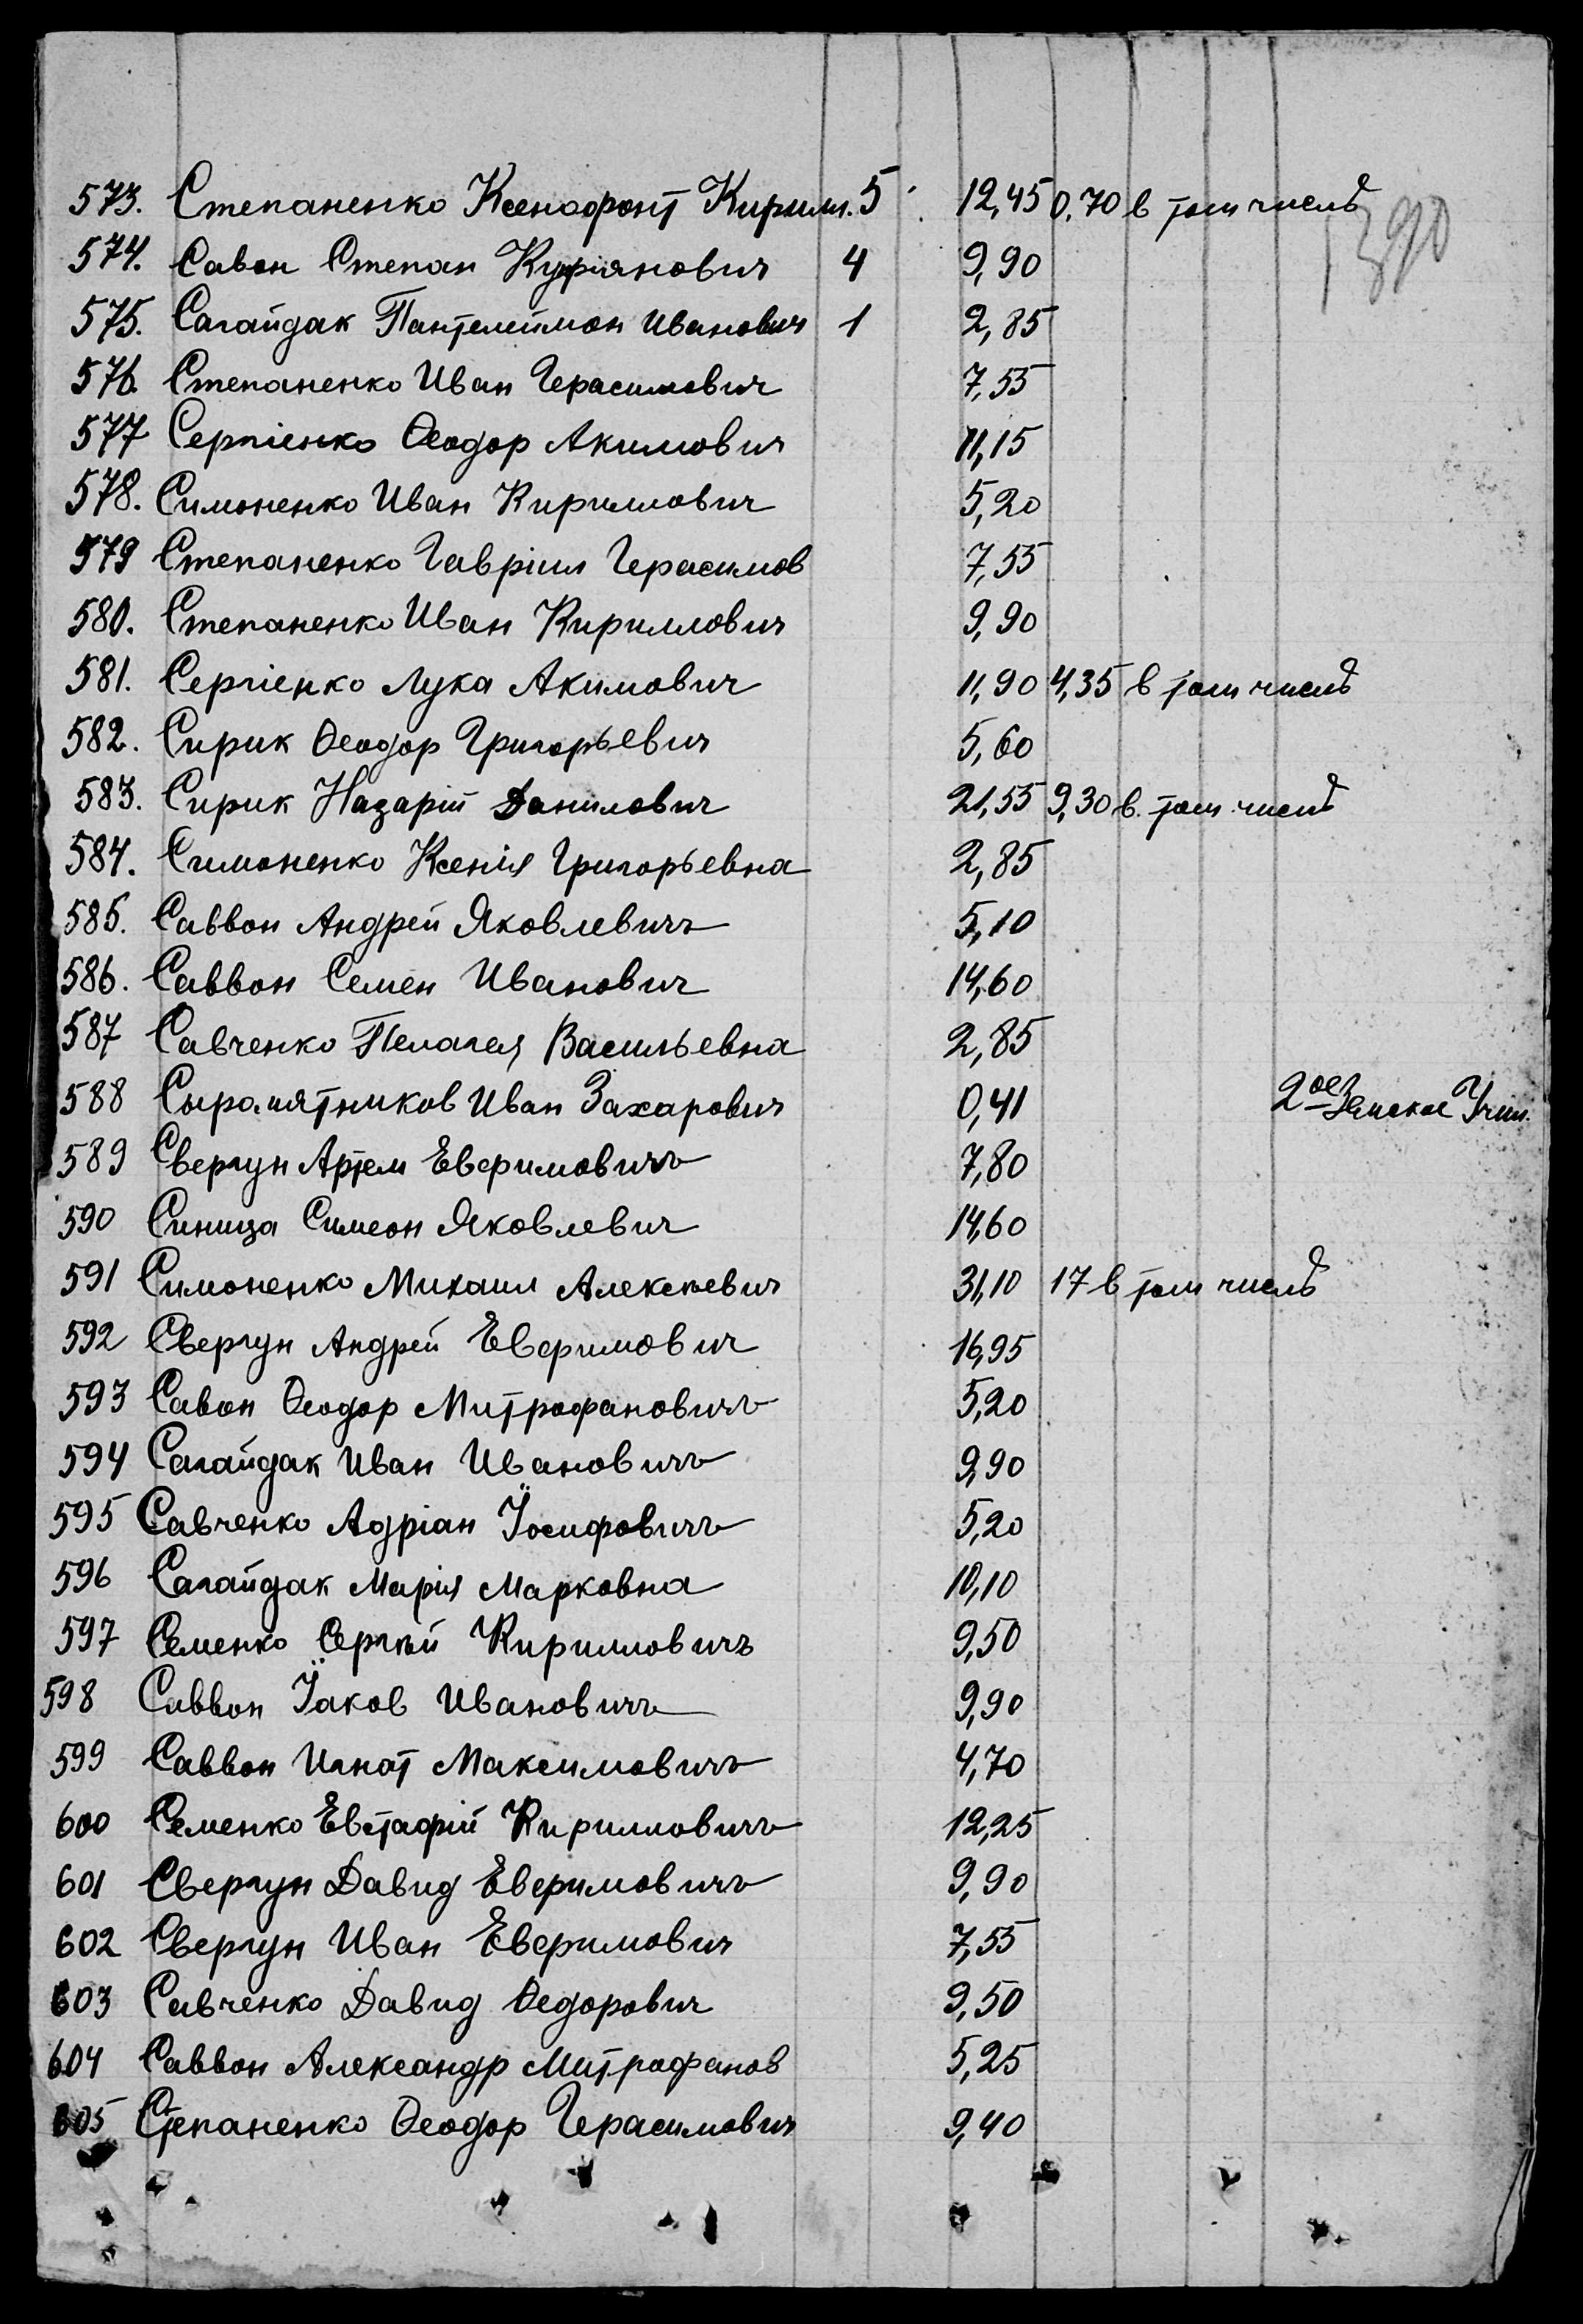 573. Степаненко Ксенофонт Кирил. 5 12,45 0,70 в том числѣ
574. Савон Степан Куприянович 4 9,90
575. Сагайдак Пантелеймон Иванович 1 2,85
576. Степаненко Иван Герасимович 7,55
577 Сергіенко Ѳеодор Акимович 11,15
578. Симоненко Иван Кириллович 5,20
579 Степаненко Гавріил Герасимов 7,55
580. Степаненко Иван Кириллович 9,90
581. Сергіенко Лука Акимович 11,90 4,35 в том числѣ
582. Сирик Ѳеодор Григорьевич 5,60
583. Сирик Назарій Данилович 21,55 9,30 в том числѣ
584. Симоненко Ксенія Григорьевна 2,85
585. Саввон Андрей Яковлевичъ 5,10
586. Саввон Семен Иванович 14,60
587 Савченко Пелагея Васильевна 2,85
588 Сыромятников Иван Захарович 0,41 2ое Земское Учил.
589 Свергун Артем Евфимовичъ 7,80
590 Синица Симеон Яковлевич 14,60
591 Симоненко Михаил Алексѣевич 31,10 17 в том числѣ
592 Свергун Андрей Евфимович 16,95
593 Савон Ѳеодор Митрофановичъ 5,20
594 Сагайдак Иван Ивановичъ 9,90
595 Савченко Адріан Їосифовичъ 5,20
596 Сагайдак Марія Марковна 10,10
597 Семенко Сергѣй Кирилловичъ 9,50
598 Саввон Їаков Ивановичъ 9,90
599 Саввон Игнат Максимовичъ 4,70
600 Семенко Евстафій Кирилловичъ 12,25
601 Свергун Давид Евфимовичъ 9,90
602 Свергун Иван Евфимович 7,55
603 Савченко Давид Ѳедорович 9,50
604 Саввон Александр Митрофанов 5,25
605 Степаненко Ѳеодор Герасимович 9,40